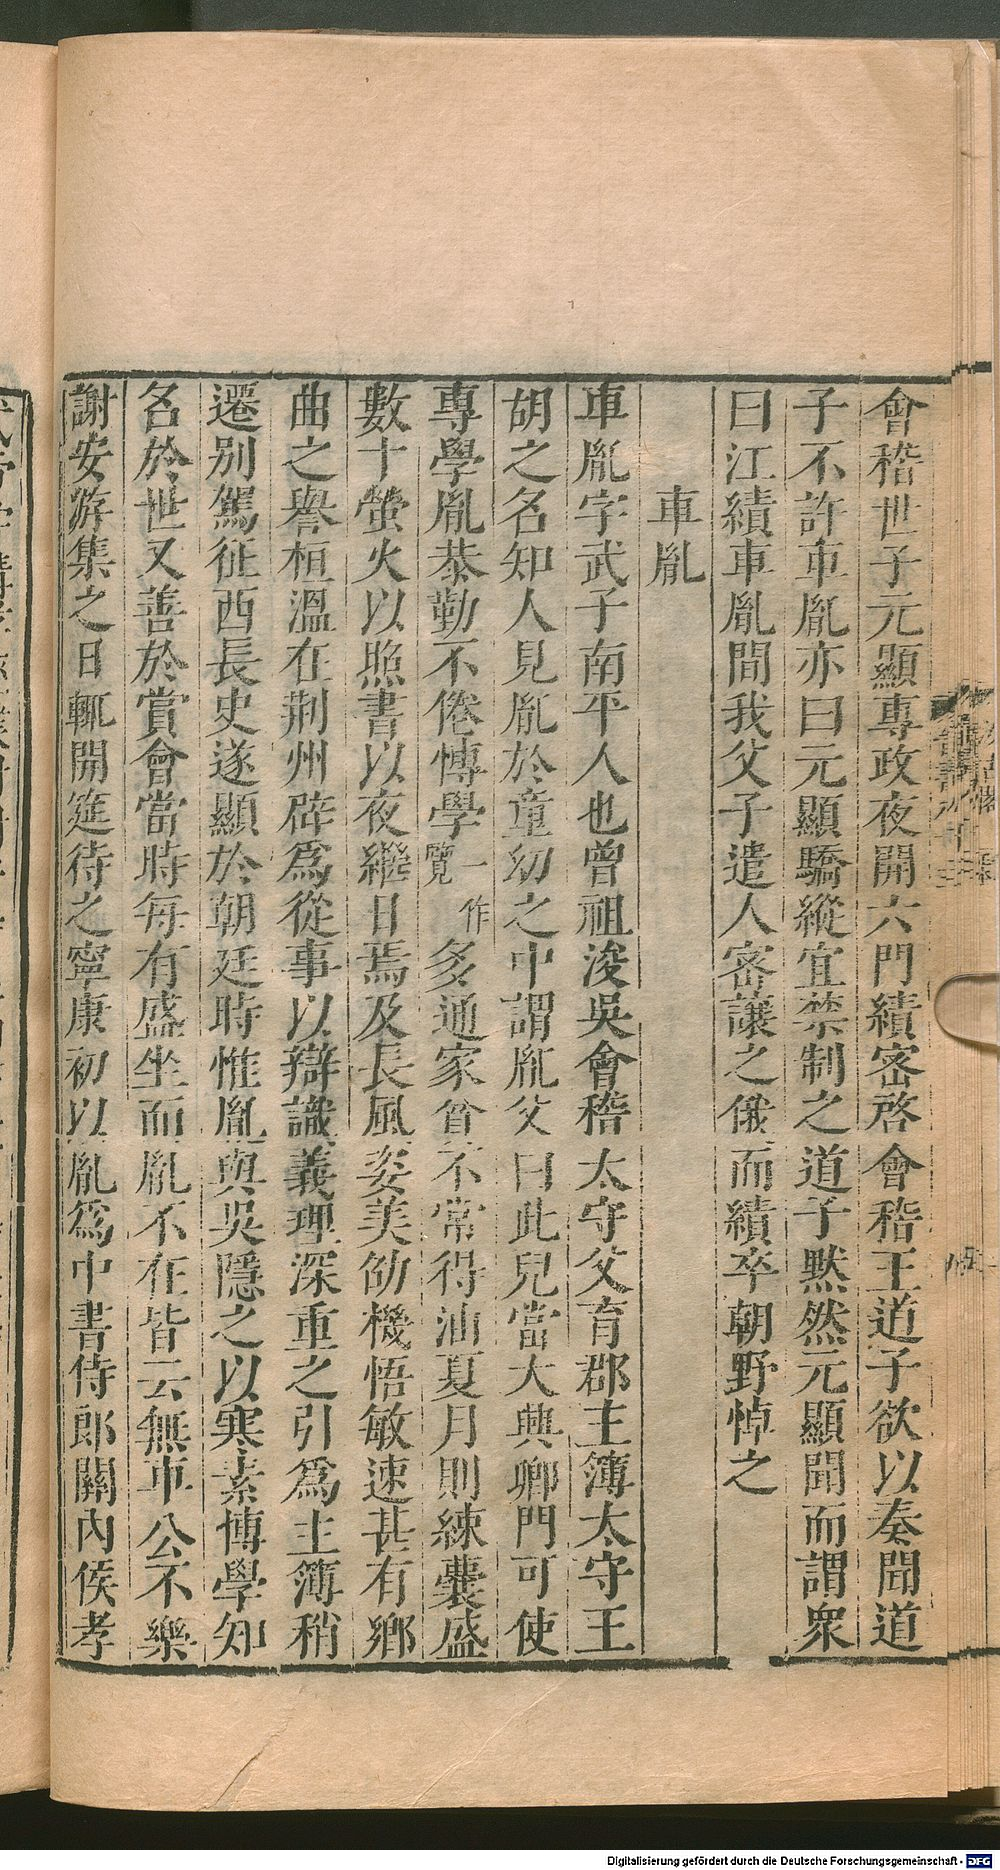 會稽世子元顯專政夜開六門績密啓會稽王道子欲以奏聞道
子不許車胤亦曰元顯驕縱宜禁制之道子默然元顯聞而謂衆
曰江績車胤間我父子遣人密讓之俄而績卒朝野悼之
車胤
車胤字武子南平人也曾祖浚吳會稽太守父育郡主簿太守王
胡之名知人見胤於童幼之中謂胤父曰此兒當大興卿門可使
專學胤恭勤不倦博學一作覽多通家貧不常得油夏月則練囊盛
數十螢火以照書以夜繼日焉及長風姿美劭機悟敏速甚有鄉
曲之譽桓溫在荆州辟爲從事以辯識義理深重之引爲主簿稍
遷別駕征西長史遂顯於朝廷時惟胤與吳隱之以寒素博學知
名於世又善於賞會當時每有盛坐而胤不在皆云無車公不樂
謝安游集之日輒開筵待之寧康初以胤爲中書侍郎關內侯孝
Digitalisierung gefördert durch die Deutsche Forschungsgemeinschaft - DFG